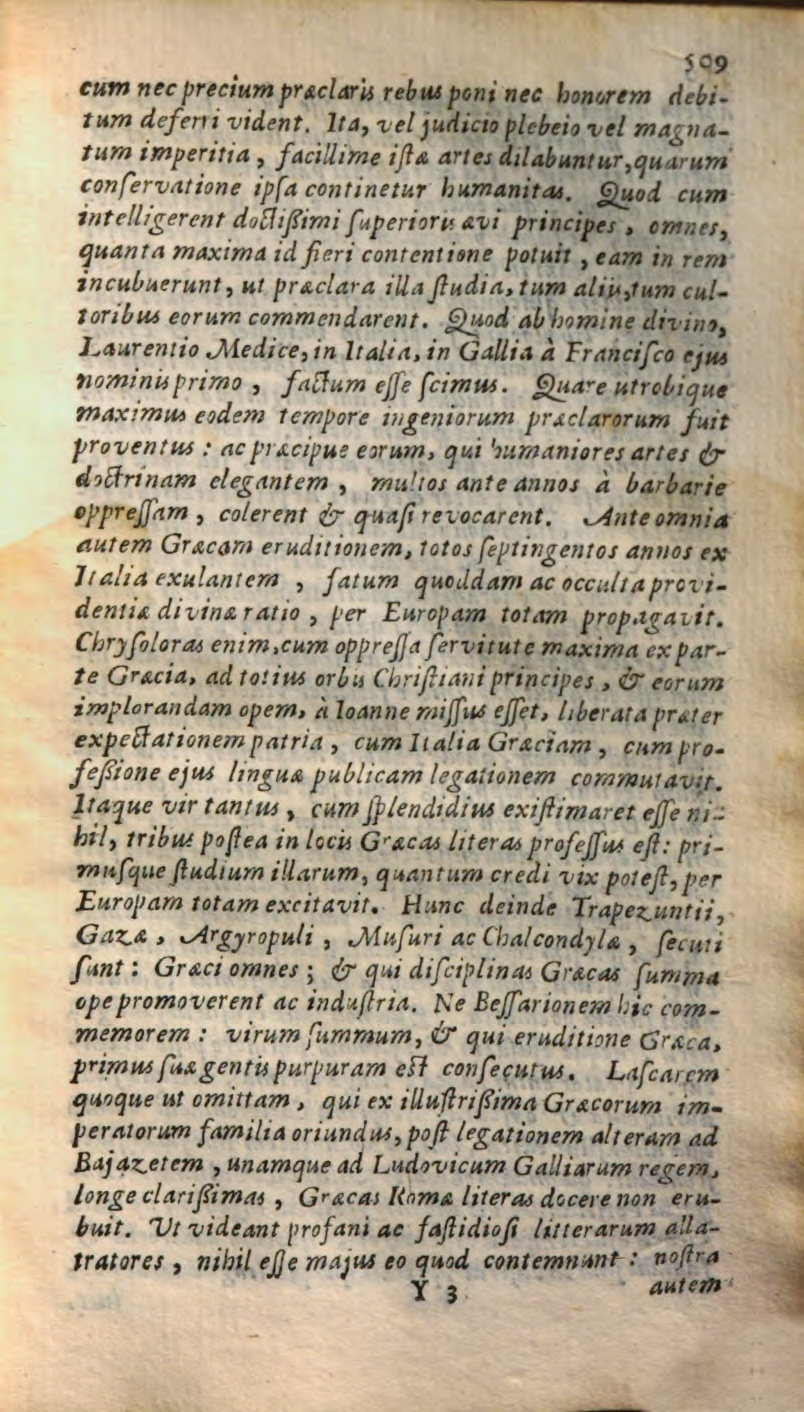 509
cum nec precium præclaris rebus poni nec honorem debi-
tum deferri vident. Ita, vel judicio plebeio vel magna-
tum imperitia, facillime iſtæ artes dilabuntur, quarum
conſervatione ipſa continetur humanitas. Quod cum
intelligerent doctiſſimi ſuperioris ævi principes, omnes,
quanta maxima id fieri contentione potuit, eam in rem
incubuerunt, ut præclara illa ſtudia, tum aliis, tum cul-
toribus eorum commendarent. Quod ab homine divino,
Laurentio Medice, in Italia, in Gallia à Franciſco ejus
nominis primo, factum eſſe ſcimus. Quare utrobique
maximus eodem tempore ingeniorum præclarorum fuit
proventus: ac præcipue eorum, qui humaniores artes &
doctrinam elegantem, multos ante annos à barbarie
oppreſſam, colerent & quaſi revocarent. Ante omnia
autem Græcam eruditionem, totos ſeptingentos annos ex
Italia exulantem, fatum quoddam ac occulta provi-
dentiæ divinæ ratio, per Europam totam propagavit.
Chryſoloras enim, cum oppreſſa ſervitute maxima ex par-
te Græcia, ad totius orbis Chriſtiani principes, & eorum
implorandam opem, à Ioanne miſſus eſſet, liberata præter
expectationem patria, cum Italia Græciam, cum pro-
feſſione ejus linguæ publicam legationem commutavit.
Itaque vir tantus, cum ſplendidius exiſtimaret eſſe ni-
hil, tribus poſtea in locis Græcas literas profeſſus eſt: pri-
muſque ſtudium illarum, quantum credi vix poteſt, per
Europam totam excitavit. Hunc deinde Trapezuntii,
Gazæ, Argyropuli, Muſuri ac Chalcondylæ, ſecuti
ſunt: Græci omnes; & qui diſciplinas Græcas ſumma
ope promoverent ac induſtria. Ne Beſſarionem hic com-
memorem: virum ſummum, & qui eruditione Græca,
primus ſuæ gentis purpuram eſt conſecutus. Laſcarem
quoque ut omittam, qui ex illuſtriſſima Græcorum im-
peratorum familia oriundus, poſt legationem alteram ad
Bajazetem, unamque ad Ludovicum Galliarum regem,
longe clariſſimas, Græcas Romæ literas docere non eru-
buit. Ut videant profani ac faſtidioſi litterarum alla-
tratores, nihil eſſe majus eo quod contemnunt: noſtra
Y 3 autem